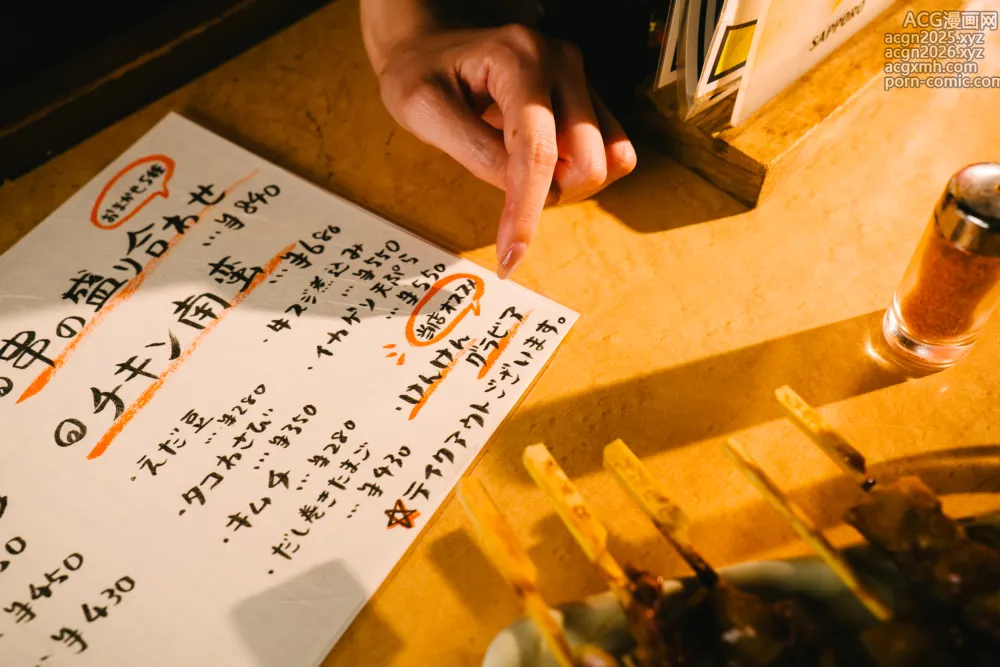 SAPPORO
ACG漫画网
acgn2025.xyz
acgn2026.xyz
acgxmh.com
porn-comic.com
おまかせ5種
串の盛り合わせ
…¥840
◎チキン南蛮
…¥680
・牛スジ煮込み
…¥550
・イカゲソ天ぷら
…¥550
当店オススメ
・けんけん
グラビア
・えだ豆
…¥280
・タコわさび
…¥350
・キムチ
…¥280
・だし巻きたまご
…¥430
☆テイクアウト
います。
¥850
¥430